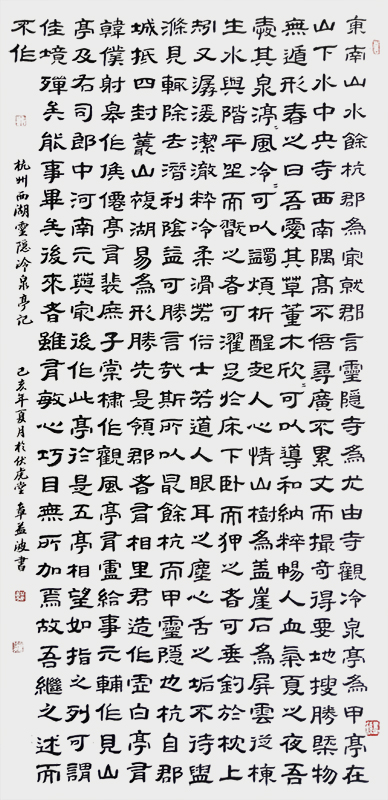 東南山水餘杭郡為冣就郡言靈隱寺為尤由寺觀冷泉亭為甲亭在
山下水中央寺西南隅高不倍尋廣不累丈而撮奇得要地搜勝槩物
無遁形春之日吾愛其草董木欣〻可以導和納粹暢人血氣夏之夜吾
愛其泉渟〻風冷〻可以蠲煩析酲起人心情山樹為蓋崖石為屏雲從棟
生水與階平坐而翫之者可濯足於床下臥而狎之者可垂釣於枕上
矧又潺湲潔澈粹冷柔滑若俗士若道人眼耳之塵心舌之垢不待盥
滌見輒除去潛利陰益可勝言哉斯所以冣餘杭而甲靈隱也杭自郡
城抵四封叢山複湖易為形勝先是領郡者有相里君造作虛白亭有
韓僕射皋作候僊亭有裴庶子棠棣作觀風亭有盧給事元輔作見山
亭及右司郎中河南元藇冣後作此亭於是五亭相望如指之列可謂
佳境殫矣能事畢矣後來者雖有敏心巧目無所加焉故吾繼之述而
不作
杭州西湖靈隱冷泉亭記
己亥年夏月於伏虎堂章益波書